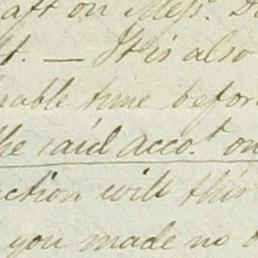 aft on Mess.rs D
t. — It is also
nable time befor
he said acco.t on
ction with this
you made no